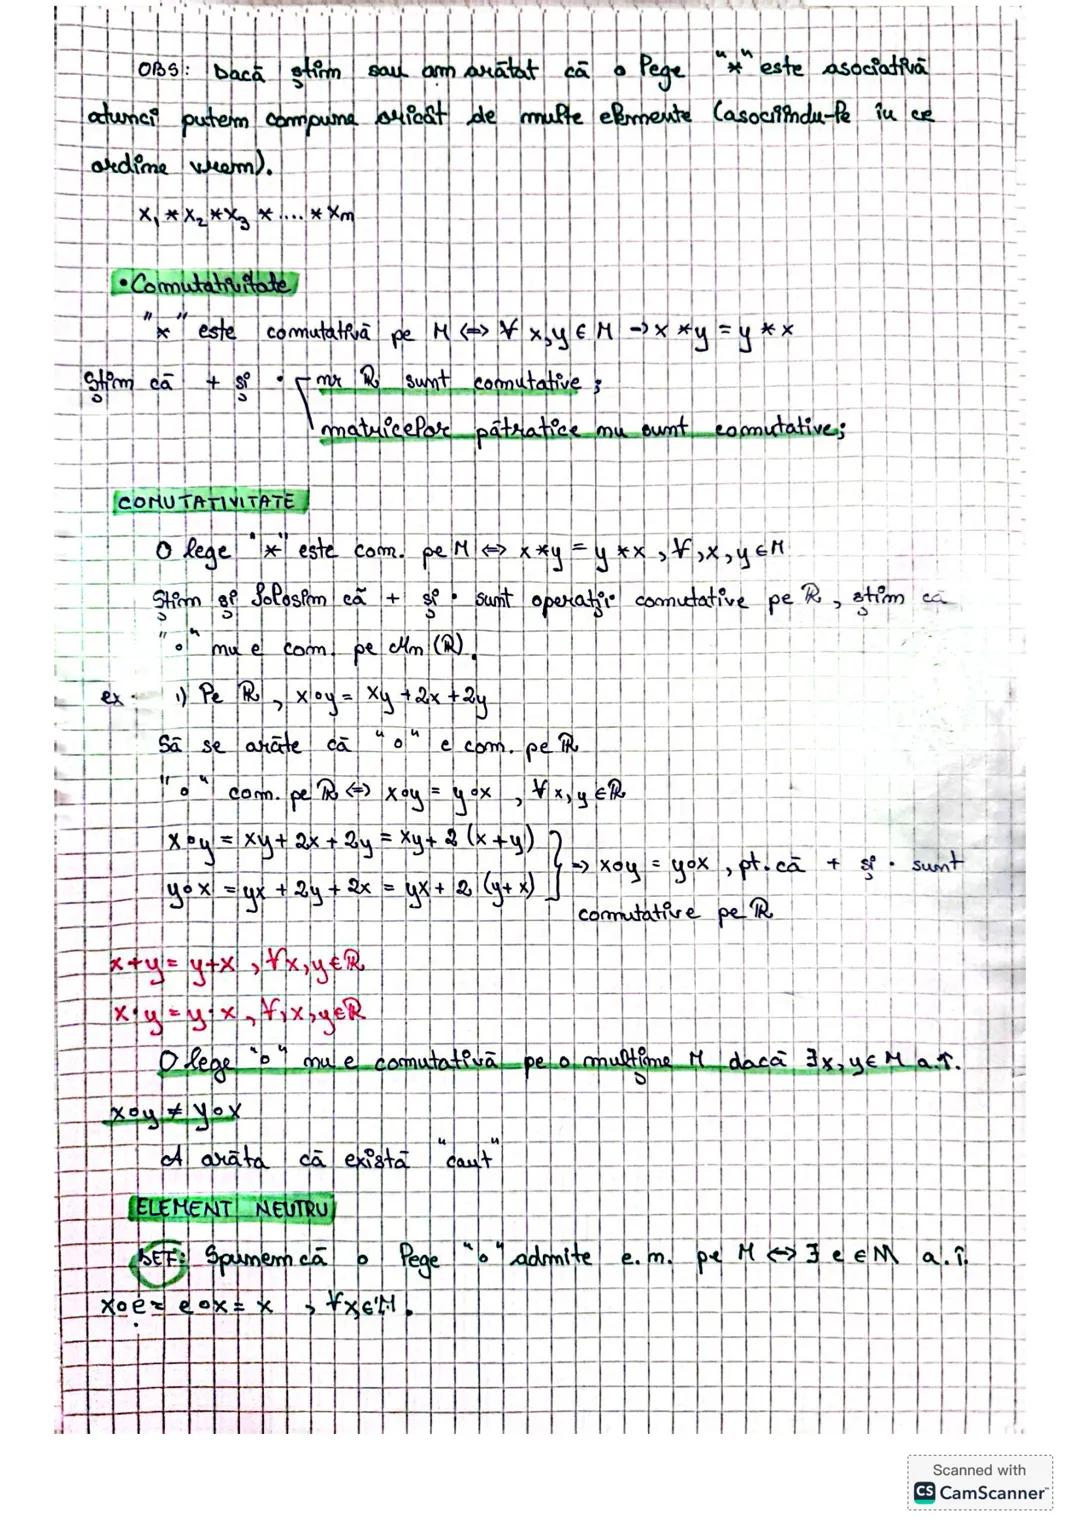 OBS: Dacă știm sau am arătat că o lege "*" este asociativă
atunci putem compune oricât de multe elemente (asociindu-le în ce
ordine vrem).
x₁ * x₂ * x₃ * .... * xn
• Comutativitate
"*" este comutativă pe M <=> ∀ x,y ∈ M -> x * y = y * x
Știm că + și · nr ℝ sunt comutative ;
matricelor pătratice nu sunt comutative;
COMUTATIVITATE
O lege "*" este com. pe M <=> x * y = y * x , ∀, x, y ∈ M
Știm și folosim că + și · sunt operații comutative pe ℝ, știm că
"∘" nu e com. pe Mn (ℝ).
ex. 1) Pe ℝ , x∘y = xy + 2x + 2y
Să se arăte că "∘" e com. pe ℝ
"∘" com. pe ℝ <=> x∘y = y∘x , ∀ x, y ∈ ℝ
x∘y = xy + 2x + 2y = xy + 2 (x+y)
y∘x = yx + 2y + 2x = yx + 2 (y+x) } => x∘y = y∘x , pt. că + și · sunt
comutative pe ℝ
x+y = y+x , ∀x,y ∈ ℝ
x·y = y·x , ∀, x, y ∈ ℝ
O lege "∘" nu e comutativă pe o mulțime M dacă ∃x, y ∈ M a.î.
x∘y ≠ y∘x
A arăta că există "caut"
ELEMENT NEUTRU
DEF: Spunem că o lege "∘" admite e.n. pe M <=> ∃ e ∈ M a.î.
x∘e = e∘x = x , ∀x ∈ M.
Scanned with
CS CamScanner